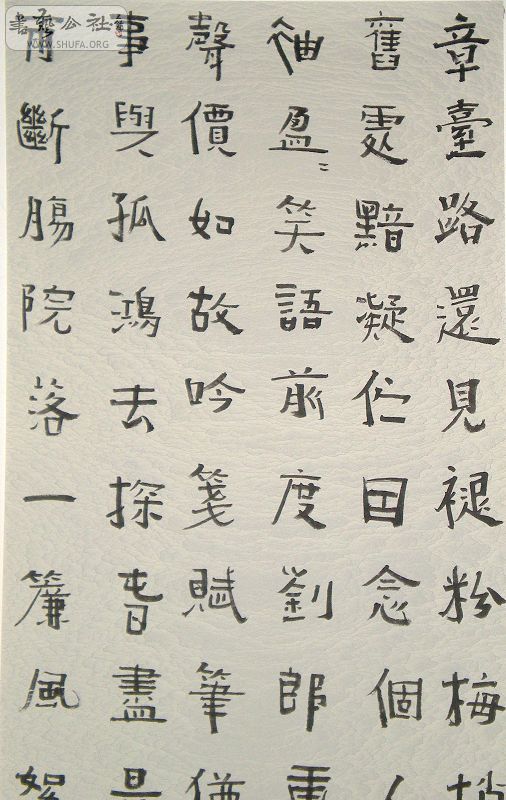 章臺路還見褪粉梅梢
舊處黯凝佇囙念個人
袖盈〻笑語前度劉郎重
聲價如故吟箋賦筆猶
事與孤鴻去探旾盡是
斷腸院落一簾風絮
書藝公社
WWW.SHUFA.ORG